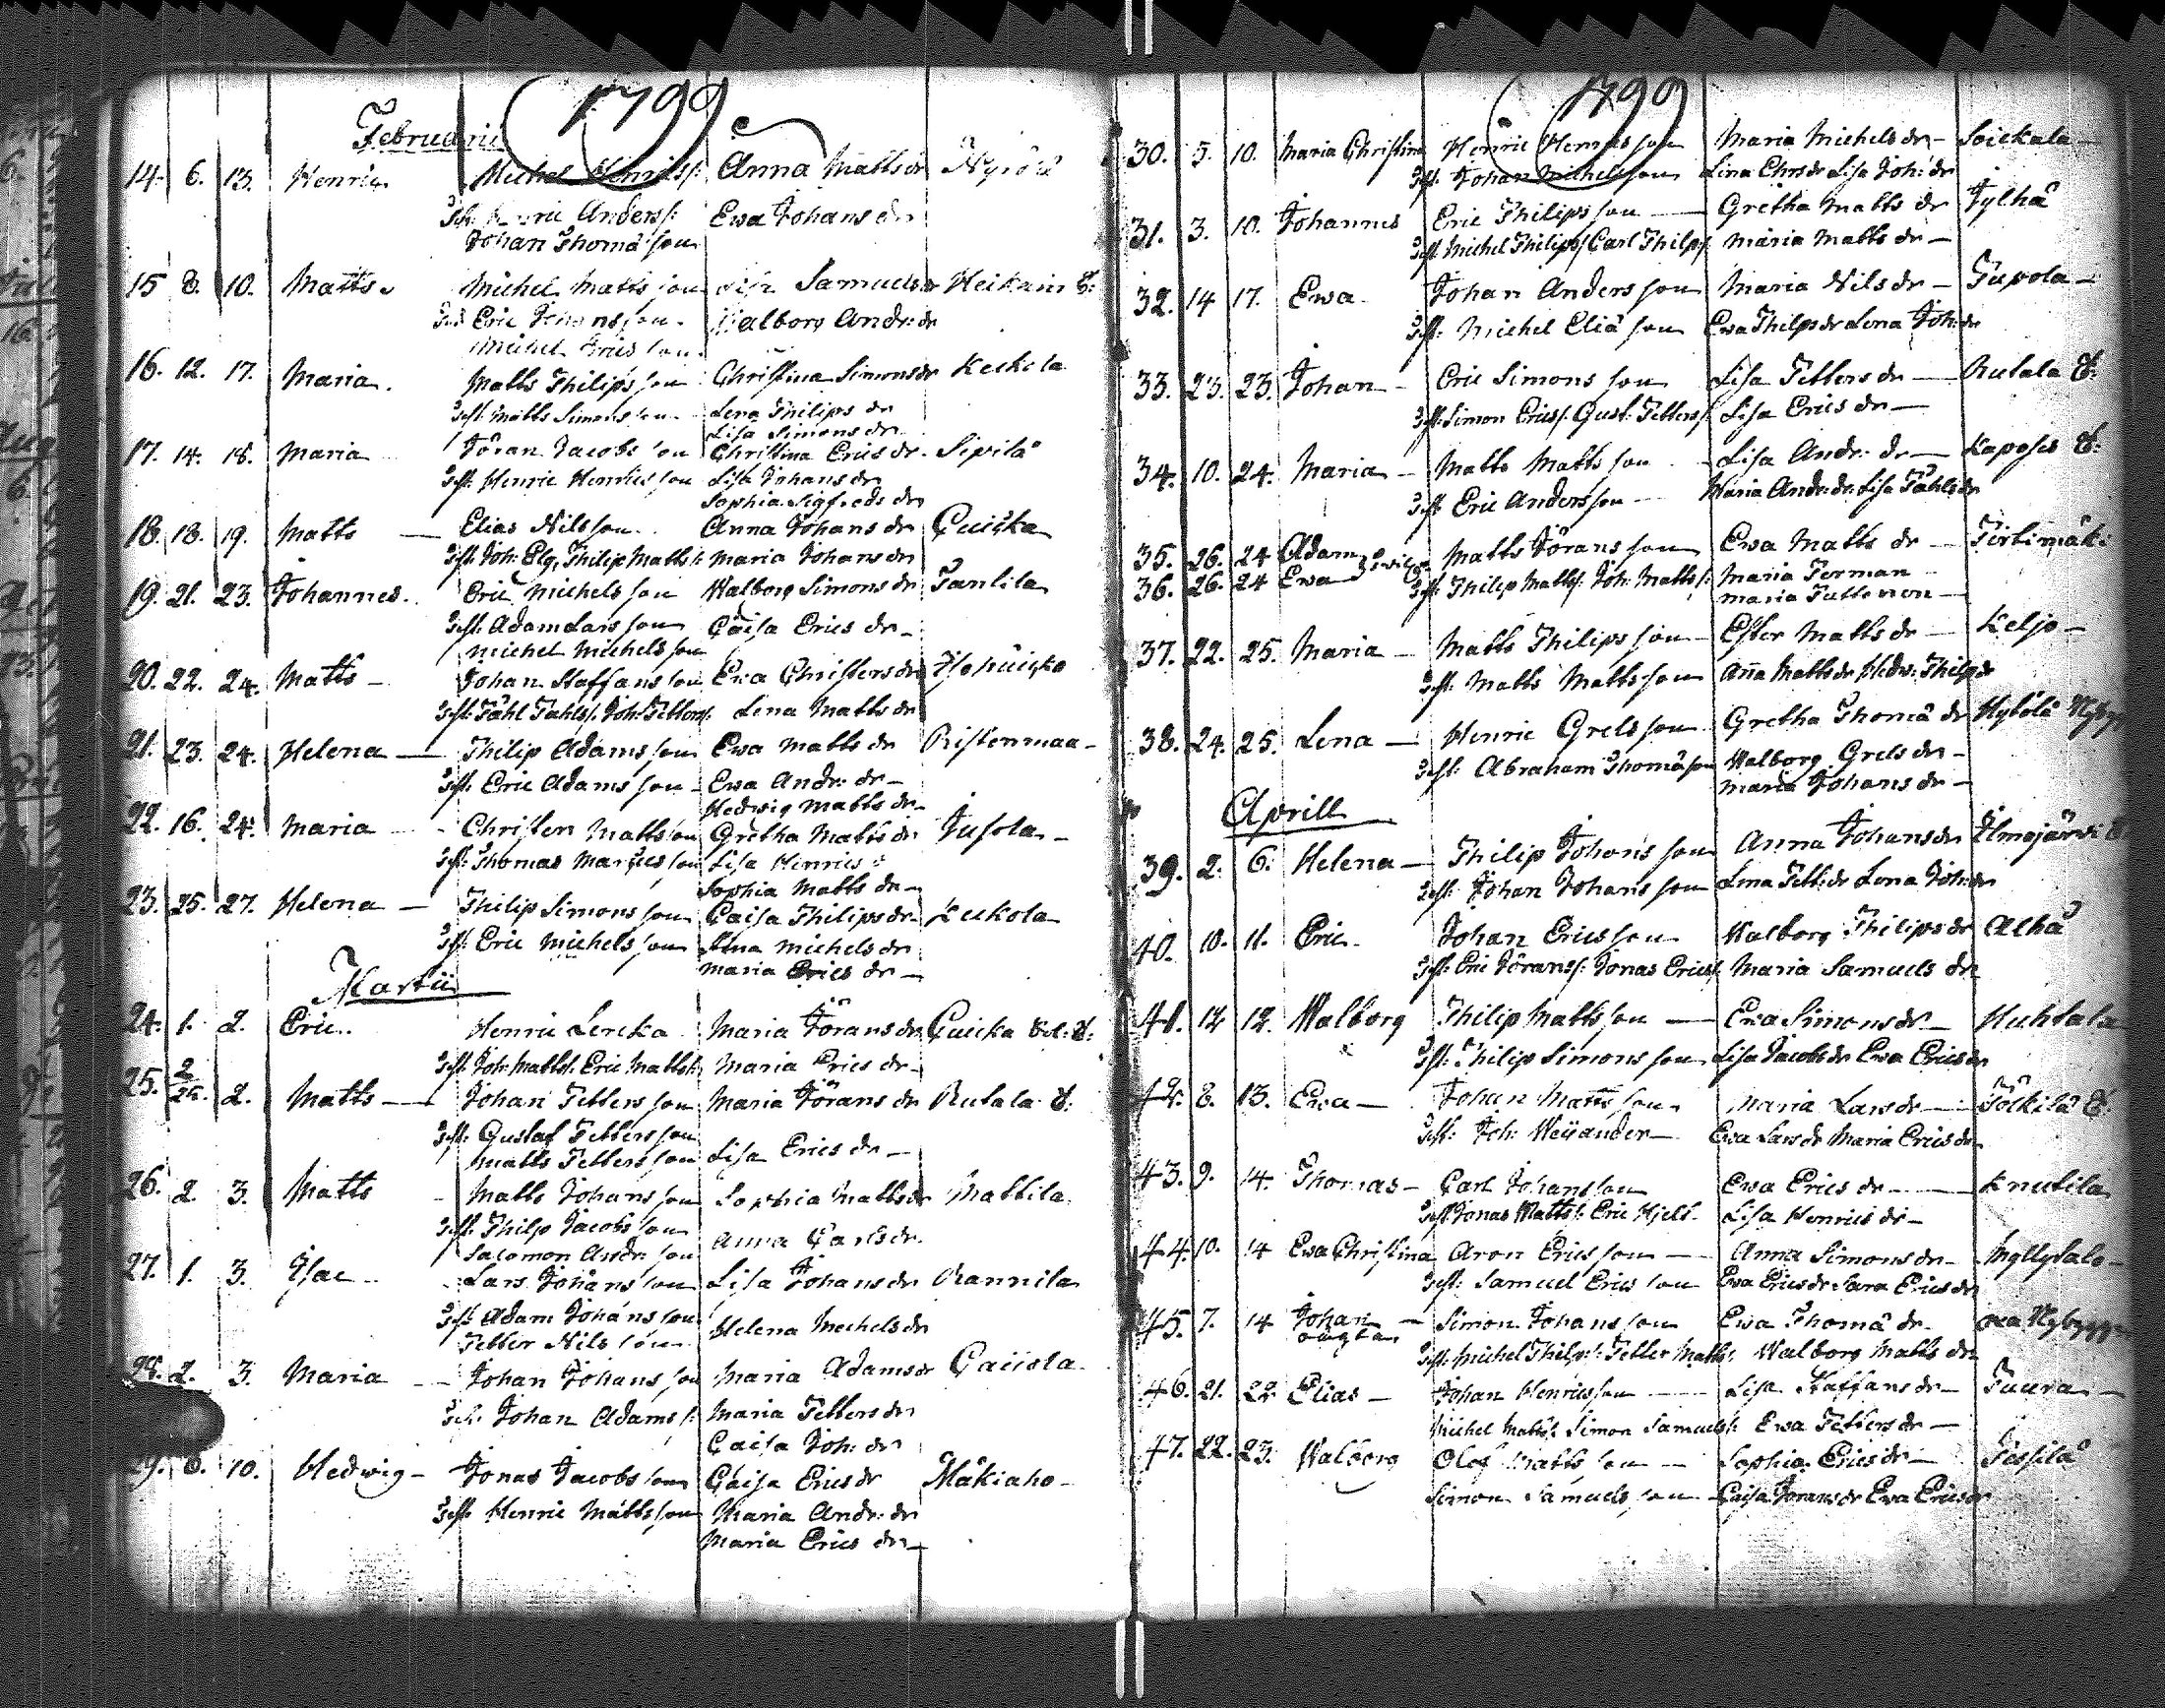 1799
Februarii
14. 6. 13. Henric Michel Henricss: Anna Matts dr
Anderss: Ewa Johans dr
Johan Thomä son
15 8. 10. Matts Michel Matts son Lisa Samuels dr Heikari
Eric Johans son Walborg Andr: dr
Michel Erics son
16. 12. 17. Maria. Matts Philips son Christina Simons dr Keckela
Test: Matts Simons son Lena Philips dr
Lisa Simons dr
17. 14. 18. Maria Jöran Jacobs son Christina Erics dr Sipilä
Test: Henric Henrics son Lisa Johans dr
Sophia Sigfreds dr
18. 18. 19. Matts Elias Nils son Anna Johans dr Cuicka
Test: Joh: Elg, Philip Matts: Maria Johans dr
19. 21. 23. Johannes. Eric Michels son Walborg Simons dr Pantila
Test: Adam Lars son Caisa Erics dr
Michel Michels son
20. 22. 24. Matts Johan Staffans son Ewa Christers dr
Test: Påhl Påhls: Joh: Petters: Lena Matts dr
21. 23. 24. Helena Philip Adams son Ewa Matts dr Ristenmaa
Test: Eric Adams son Ewa Andr: dr
Hedwig Matts dr
22. 16. 24. Maria Christer Matts son Gretha Matts dr Jusola
Test: Thomas Marcus son Lisa Henrics
Sophia Matts dr
23. 25. 27. Helena Philip Simons son Caisa Philips dr Luckola
Test: Eric Michels son Lena Michels dr
Maria Erics dr
Martii
24. 1. 2. Eric. Henric Lercka Maria Jörans dr Cuicka
Test: Joh: Matts: Eric Matts: Maria Erics dr
25. 2/25. 2. Matts Johan Petters son Maria Jörans dr Rutala
Test: Gustaf Petters son
Matts Petters son Lisa Erics dr
26. 2. 3. Matts Matts Johans son Sophia Matts dr Mattila
Test: Philip Jacobs son
Salomon Andr: son Anna Carls dr
27. 1. 3. Isac Lars Johans son Lisa Johans dr Rannila
Test: Adam Johans son
Petter Nils son Helena Michels dr
28. 2. 3. Maria Johan Johans son Maria Adams dr
Johan Adams: Maria Petters dr
Caisa Joh: dr
29. 8. 10. Hedwig Jonas Jacobs son Caisa Erics dr Mäkiaho
Test: Henric Matts son Maria Andr: dr
Maria Erics dr
1799
30. 5. 10. Maria Christina Henric Henrics son Maria Michels dr Soickala
Test: Johan Michels son Lina Chrs dr Lisa Joh: dr
31. 3. 10. Johannes Eric Philips son Gretha Matts dr Jylhä
Test: Michel Philips: Carl Philps: Maria Matts dr
32. 14 17. Ewa Johan Anders son Maria Nils dr Tupola
Test: Michel Eliä son Ewa Philps dr Lena Joh: dr
33. 23. 23. Johan Eric Simons son Lisa Petters dr Rutala
Test: Simon Erics: Gust: Petters: Lisa Erics dr
34. 10. 24. Maria Matts Matts son Lisa Andr: dr Kaposes
Test: Eric Anders son Maria Andr: dr Lisa Påhls dr
35. 26. 24 Adam Matts Jörans son Ewa Matts dr Pirtimäki
36. 26. 24 Ewa Test: Philip Matts: Joh: Matts: Maria Perman
37. 22. 25. Maria Matts Philips son Ester Matts dr Keljo
Test: Matts Matts son Anna Matts dr Hedw: Philps dr
38. 24. 25. Lena Henric Grels son Gretha Thomä dr
Test: Abraham Thomä son Walborg Grels dr
Maria Johans dr
Aprill
39. 2. 6. Helena Philip Johans son Anna Johans dr Ilmajärvi
Test: Johan Johans son Lena Pett: dr Lena Joh: dr
40. 10. 11. Eric Johan Erics son Walborg Philips dr Alhä
Test: Eric Jörans: Jonas Erics: Maria Samuels dr
41. 12 12. Walborg Philip Matts son Ewa Simons dr Huhtala
Test: Philip Simons son Lisa Jacobs dr Ewa Erics dr
42. 8. 13. Ewa Johan Matts son Maria Lars dr
Test: Joh: Weijander Ewa Lars dr Maria Erics dr
43. 9. 14. Thomas Carl Johans son Ewa Erics dr Knutila
Test: Jonas Matts: Eric Hjelt Lisa Henrics dr
44. 10. 14 Ewa Christina Aron Erics son Anna Simons dr
Test: Samuel Erics son Ewa Erics dr Sara Erics dr
45. 7. 14 Johan Simon Johans son Ewa Thomä dr
oägtan Test: Michel Philps: Petter Matts: Walborg Matts dr
46. 21. 22 Elias Johan Henrics son Lisa Staffans dr Tuura
Michel Matts: Simon Samuels: Ewa Petters dr
47. 22. 23. Walborg Olof Matts son Sophia Erics dr Pessilä
Simon Samuels son Caisa Jörans dr Ewa Erics dr